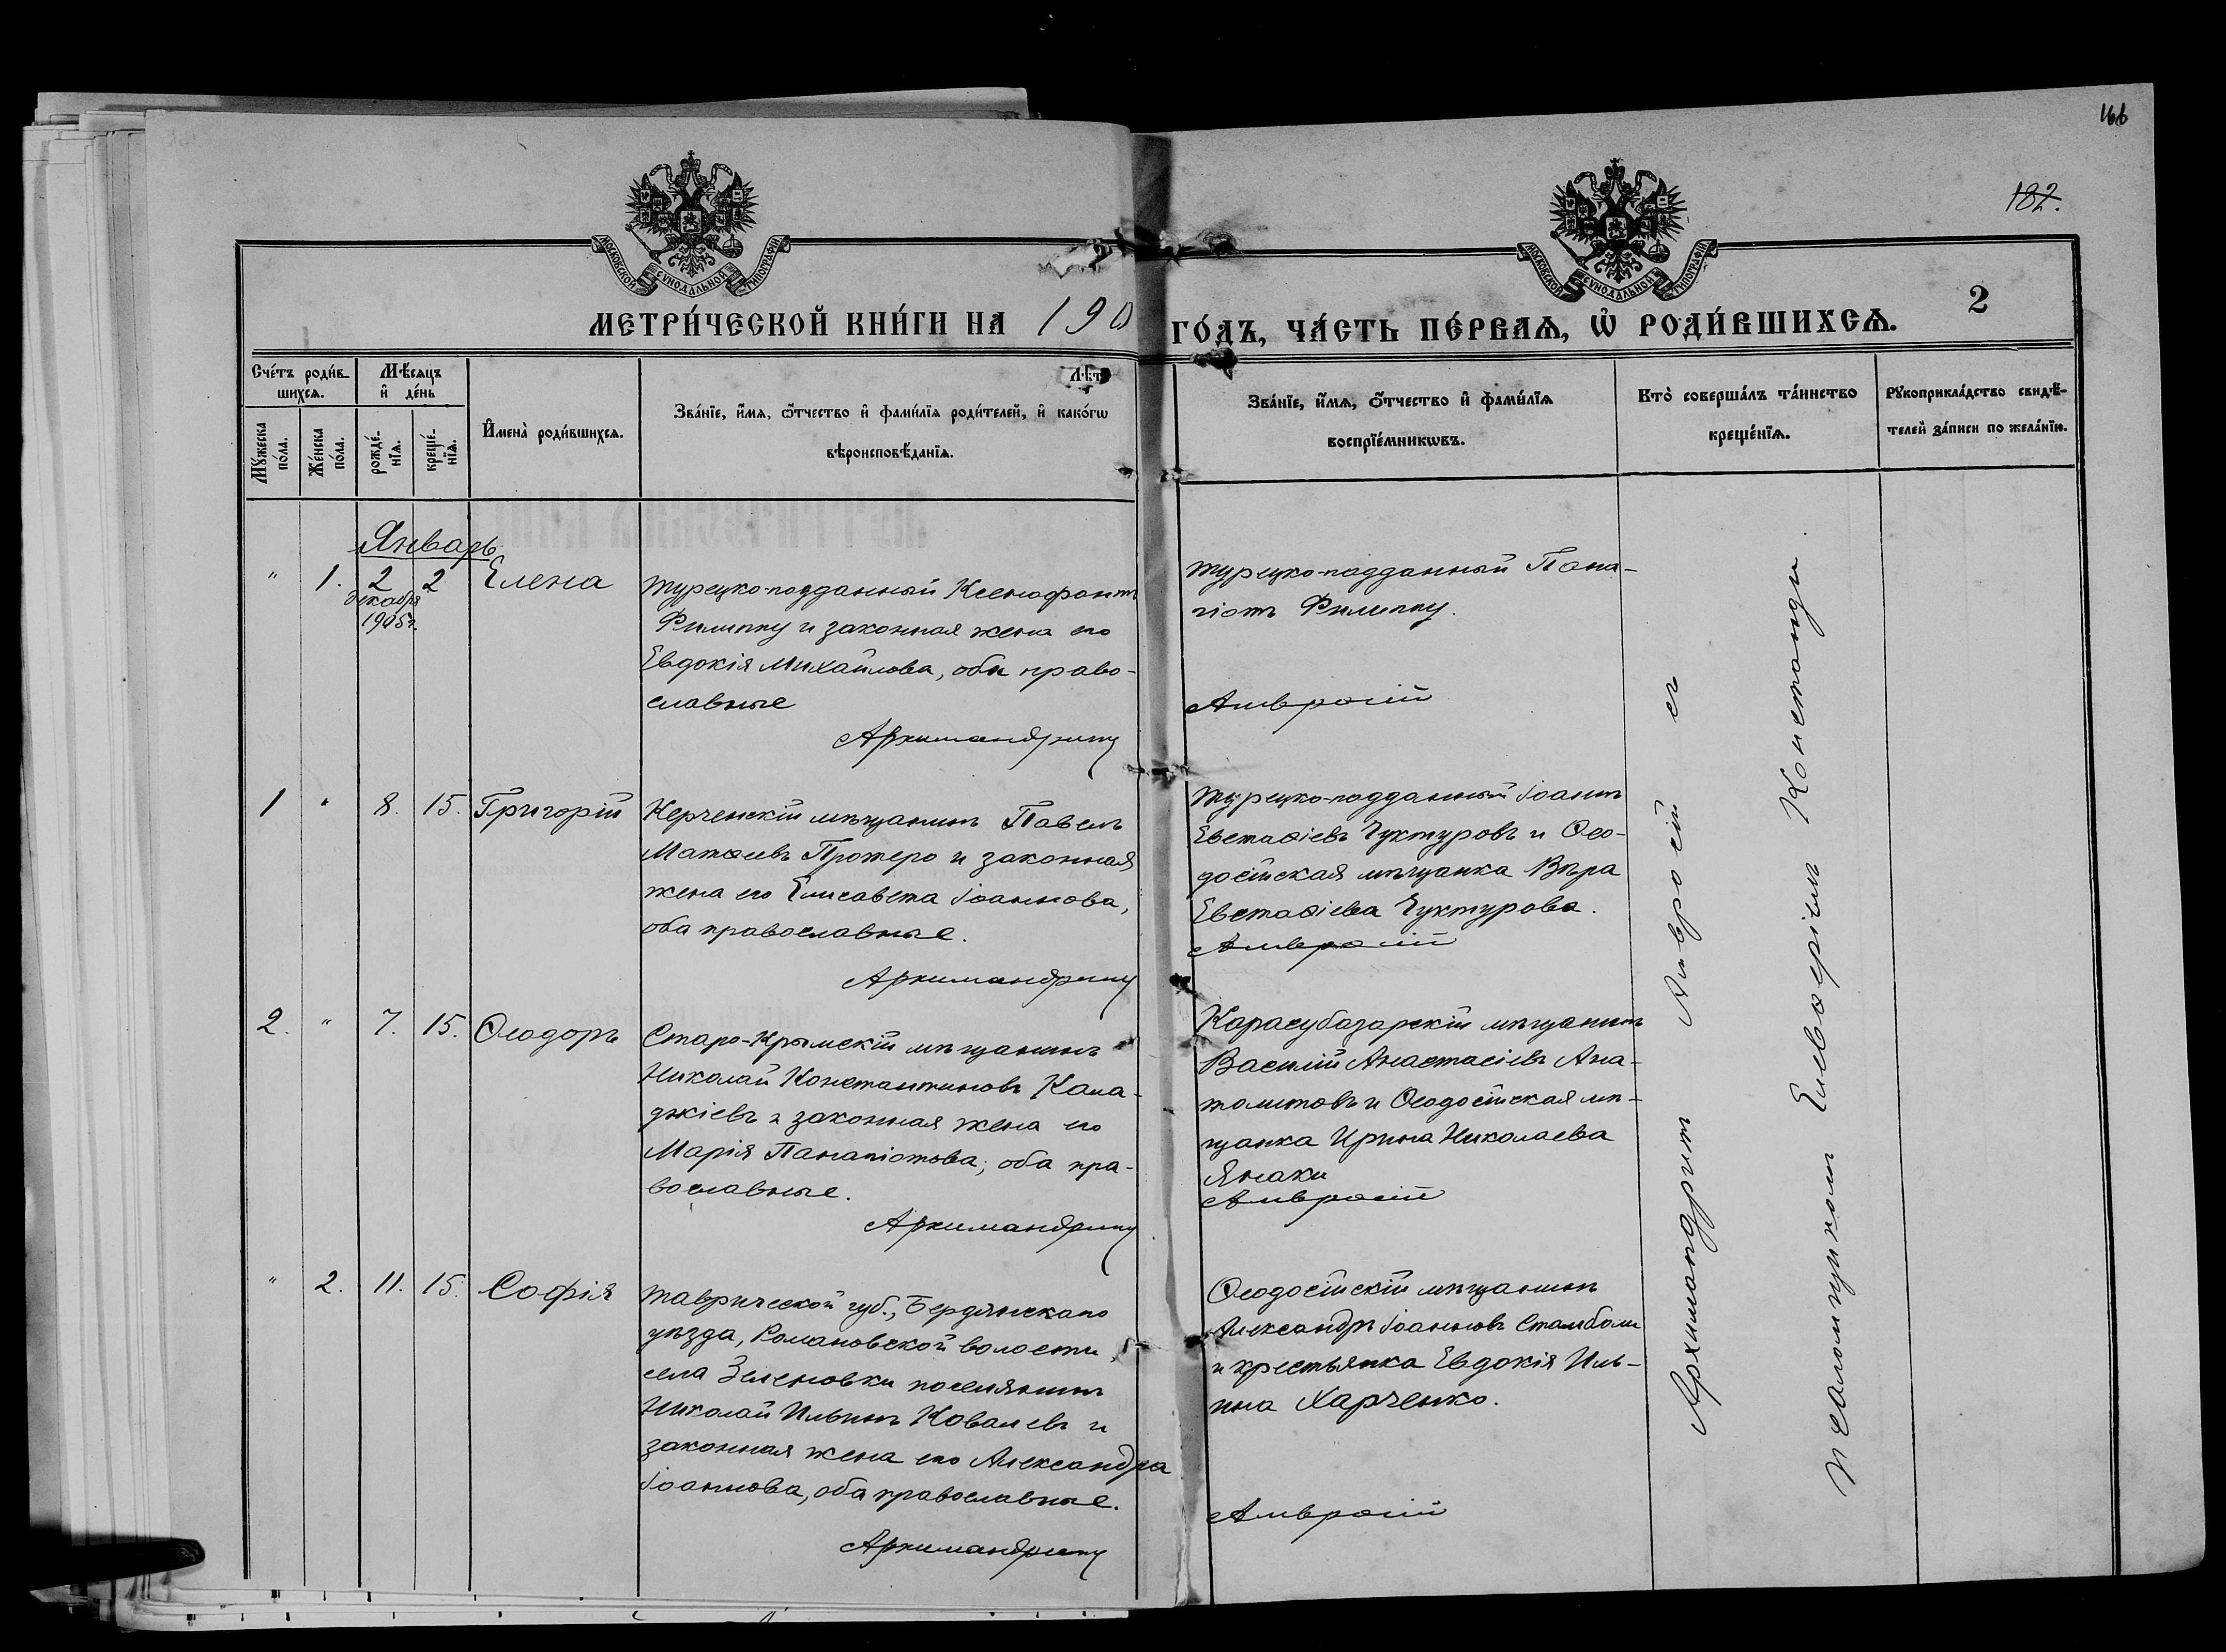 166
182.
МОСКОВСКОЙ СѴНОДАЛЬНОЙ ТИПОГРАФІИ
МОСКОВСКОЙ СѴНОДАЛЬНОЙ ТИПОГРАФІИ
2
МЕТРИ́ЧЕСКОЙ КНИ́ГИ НА 190
ГО́ДЪ, ЧА́СТЬ ПЕ́РВАѦ, Ѡ҆ РОДИ́ВШИХСѦ.
2
Сче́тъ роди́в-
шихсѧ.
Мѣ́сѧцъ
и҆ де́нь
Лѣтъ
Мꙋ́жеска
по́ла.
Же́нска
по́ла.
рожде́-
нїѧ.
креще́-
нїѧ.
И҆мена̀ роди́вшихсѧ.
Зва́нїе, и҆́мѧ, ѻ҆́тчество и҆ фами́лїѧ роди́телей, и҆ како́гѡ
вѣроисповѣ́данїѧ.
Зва́нїе, и҆́мѧ, ѻ҆́тчество и҆ фами́лїѧ
воспрїе́мникѡвъ.
Кто̀ соверша́лъ та́инство
креще́нїѧ.
Рꙋкоприкла́дство свидѣ́-
телей за́писи по жела́нїю.
Январь
" 1. 2 2 Елена
декабря
1905г.
турецко-подданный Ксенофонтъ
Филиппу и законная жена его
Евдокія Михайлова, оба право-
славные
Архимандритъ
турецко-подданный Пана-
гіотъ Филиппу.
Амвросій
1 " 8. 15. Григорій
Керченскій мѣщанинъ Павелъ
Матѳеевъ Протеро и законная
жена его Елисавета Іоаннова,
оба православные.
Архимандритъ
турецко-подданный Іоаннъ
Евстаѳіевъ Чуктуровъ и Ѳео-
досійская мѣщанка Вѣра
Евстаѳіева Чуктурова.
Амвросій
2. " 7. 15. Ѳеодоръ
Старо-Крымскій мѣщанинъ
Николай Константиновъ Кала-
джіевъ и законная жена его
Марія Панагіотова, оба пра-
вославные.
Архимандритъ
Карасубазарскій мѣщанинъ
Василій Анастасіевъ Ана-
толитовъ и Ѳеодосійская мѣ-
щанка Ирина Николаева
Янаки
Амвросій
" 2. 11. 15. Софія
Таврической губ., Бердянскаго
уѣзда, Романовской волости,
села Зеленовки поселянинъ
Николай Ильинъ Ковалевъ и
законная жена его Александра
Іоаннова, оба православные.
Архимандритъ
Ѳеодосійскій мѣщанинъ
Александръ Іоанновъ Стамболи
и крестьянка Евдокія Иль-
ина Харченко.
Амвросій
Архимандритъ Амвросій съ
псаломщикомъ Елевѳеріемъ Констанди.